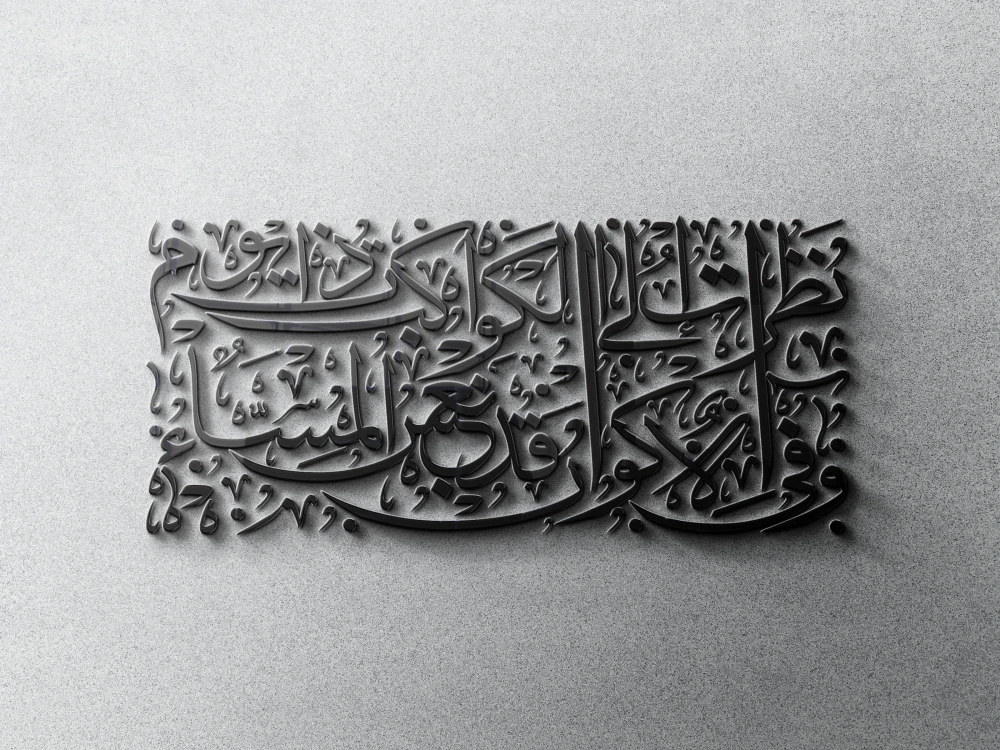 نظرت إلى الكواكب ذات يوم
وفي الأكوان قد نعس المساء